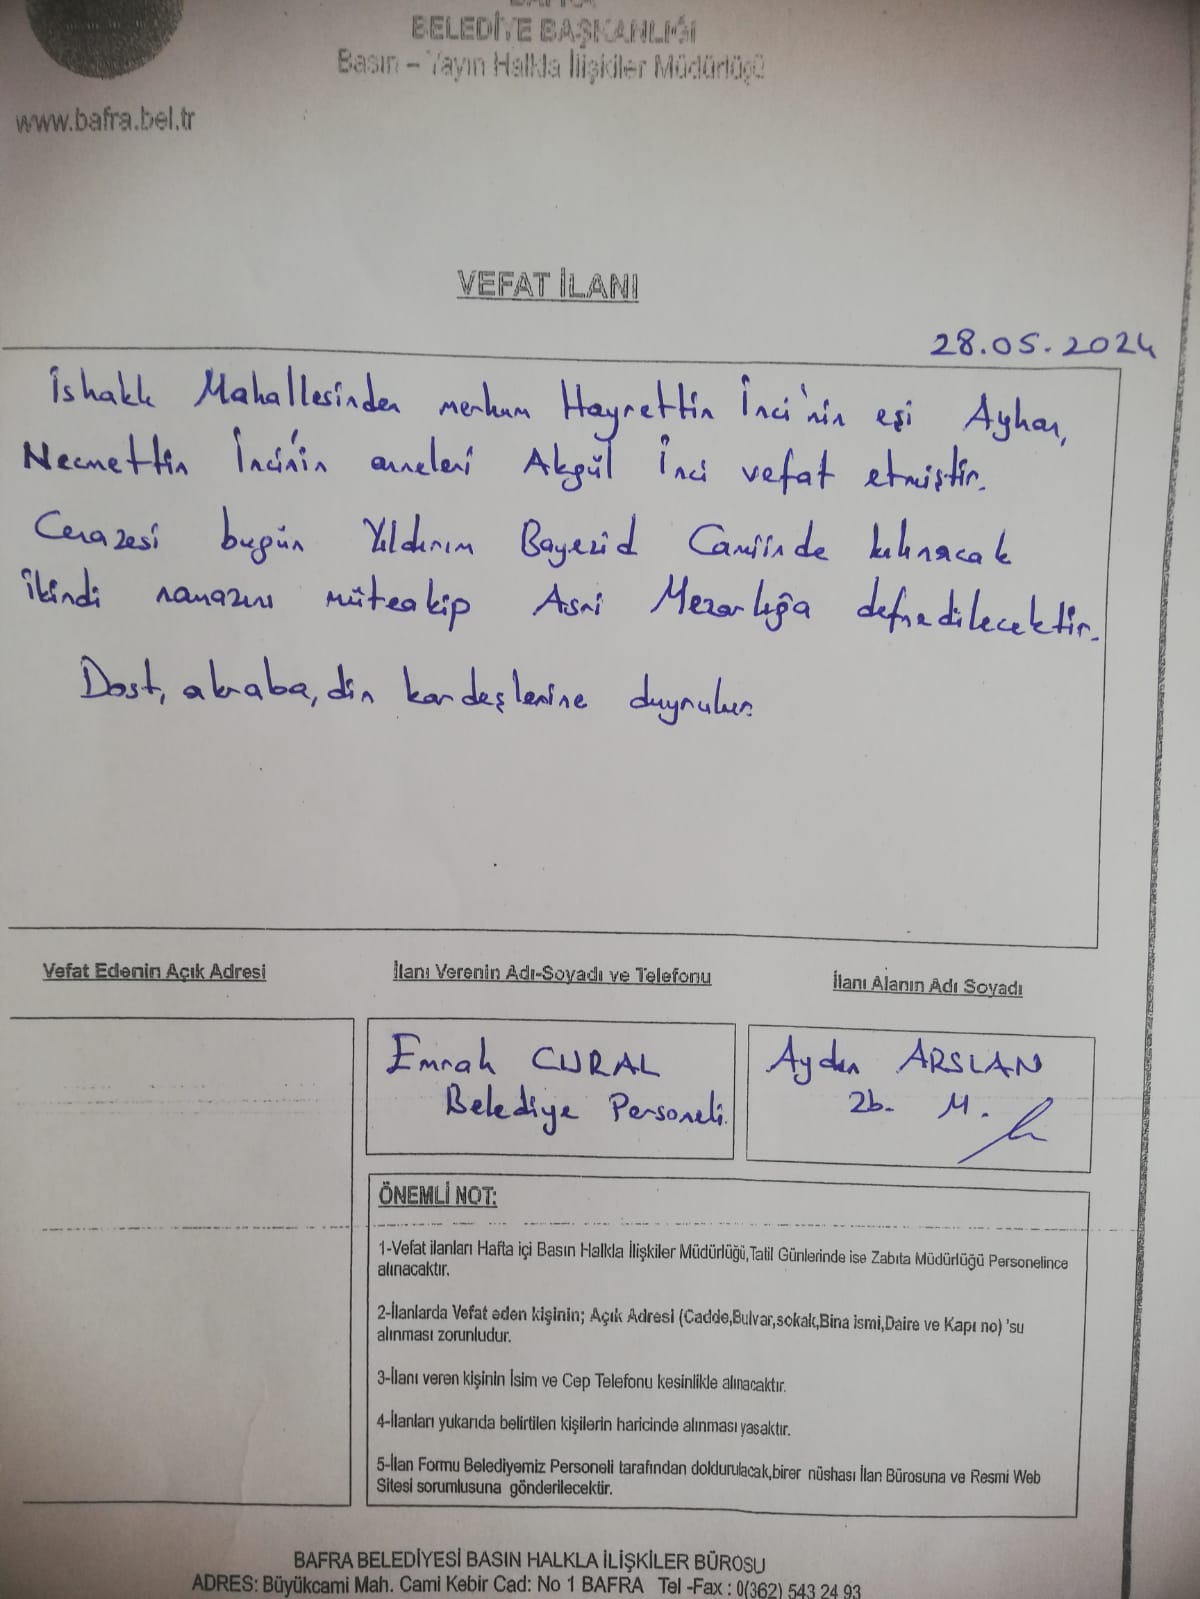 BAFRA
BELEDİYE BAŞKANLIĞI
Basın – Yayın Halkla İlişkiler Müdürlüğü
www.bafra.bel.tr
VEFAT İLANI
28.05.2024
İshaklı Mahallesinden merhum Hayrettin İnci'nin eşi Ayhan,
Necmettin İnci'nin anneleri Akgül İnci vefat etmiştir.
Cenazesi bugün Yıldırım Bayezid Camiinde kılınacak
ikindi namazını müteakip Asri Mezarlığa defnedilecektir.
Dost, akraba, din kardeşlerine duyrulur.
Vefat Edenin Açık Adresi
İlanı Verenin Adı-Soyadı ve Telefonu
İlanı Alanın Adı Soyadı
Emrah CURAL
Belediye Personeli.
Aydın ARSLAN
Zb. M.
ÖNEMLİ NOT:
1-Vefat ilanları Hafta içi Basın Halkla İlişkiler Müdürlüğü,Tatil Günlerinde ise Zabıta Müdürlüğü Personelince
alınacaktır.
2-İlanlarda Vefat eden kişinin; Açık Adresi (Cadde,Bulvar,sokak,Bina ismi,Daire ve Kapı no) 'su
alınması zorunludur.
3-İlanı veren kişinin İsim ve Cep Telefonu kesinlikle alınacaktır.
4-İlanları yukarıda belirtilen kişilerin haricinde alınması yasaktır.
5-İlan Formu Belediyemiz Personeli tarafından doldurulacak,birer nüshası İlan Bürosuna ve Resmi Web
Sitesi sorumlusuna gönderilecektir.
BAFRA BELEDİYESİ BASIN HALKLA İLİŞKİLER BÜROSU
ADRES: Büyükcami Mah. Cami Kebir Cad: No 1 BAFRA Tel -Fax : 0(362) 543 24 93